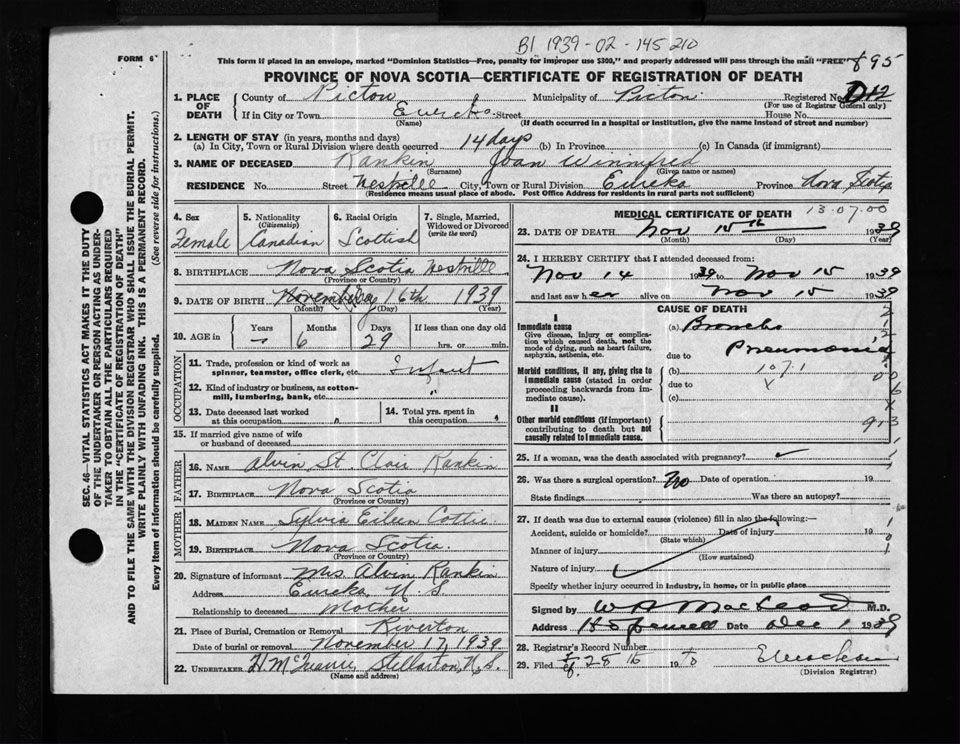 B1 1939-02-145210
FORM 6
This form if placed in an envelope, marked "Dominion Statistics—Free, penalty for improper use $300," and properly addressed will pass through the mail "FREE" 895
PROVINCE OF NOVA SCOTIA—CERTIFICATE OF REGISTRATION OF DEATH
SEC. 46—VITAL STATISTICS ACT MAKES IT THE DUTY
OF THE UNDERTAKER OR PERSON ACTING AS UNDER-
TAKER TO OBTAIN ALL THE PARTICULARS REQUIRED
IN THE "CERTIFICATE OF REGISTRATION OF DEATH"
AND TO FILE THE SAME WITH THE DIVISION REGISTRAR WHO SHALL ISSUE THE BURIAL PERMIT.
WRITE PLAINLY WITH UNFADING INK. THIS IS A PERMANENT RECORD.
Every item of information should be carefully supplied. (See reverse side for instructions.)
1. PLACE OF DEATH County of Pictou Municipality of Pictou Registered No.
(For use of Registrar General only)
If in City or Town Eureka Street House No.
(Name) (If death occurred in a hospital or institution, give the name instead of street and number)
2. LENGTH OF STAY (in years, months and days)
(a) In City, Town or Rural Division where death occurred 14 days (b) In Province (c) In Canada (if immigrant)
3. NAME OF DECEASED Rankin Joan Winnifred
(Surname) (Given name or names)
RESIDENCE No. Street Westville City, Town or Rural Division Eureka Province Nova Scotia
Residence means usual place of abode. Post Office Address for residents in rural parts not sufficient)
4. Sex Female
5. Nationality (Citizenship) Canadian
6. Racial Origin Scottish
7. Single, Married, Widowed or Divorced (write the word)
8. BIRTHPLACE Nova Scotia Westville
(Province or Country)
9. DATE OF BIRTH 16th 1939
(Month) (Day) (Year)
10. AGE in Years Months 6 Days 29 If less than one day old hrs. or min.
OCCUPATION
11. Trade, profession or kind of work as spinner, teamster, office clerk, etc. Infant
12. Kind of industry or business, as cotton-mill, lumbering, bank, etc. "
13. Date deceased last worked at this occupation "
14. Total yrs. spent in this occupation
15. If married give name of wife or husband of deceased
FATHER
16. NAME Alvin St Clair Rankin
17. BIRTHPLACE Nova Scotia
(Province or Country)
MOTHER
18. MAIDEN NAME Sylvia Eileen Cottie
19. BIRTHPLACE Nova Scotia.
(Province or Country)
20. Signature of informant Mrs Alvin Rankin
Address Eureka, N.S.
Relationship to deceased Mother
21. Place of Burial, Cremation or Removal Riverton
Date of burial or removal November 17, 1939
22. UNDERTAKER Stellarton, N.S.
(Name and address)
MEDICAL CERTIFICATE OF DEATH 13-07-00
23. DATE OF DEATH Nov 15th 1939
(Month) (Day) (Year)
24. I HEREBY CERTIFY that I attended deceased from:
Nov 14 1939 to Nov 15 1939
and last saw her alive on Nov 15 1939
CAUSE OF DEATH
I
Immediate cause (a) Broncho
Give disease, injury or complication which caused death, not the mode of dying, such as heart failure, asphyxia, asthenia, etc.
due to Pneumonia
Morbid conditions, if any, giving rise to immediate cause (stated in order proceeding backwards from immediate cause).
(b) 107.1
due to
(c)
II
Other morbid conditions (if important) contributing to death but not causally related to immediate cause.
25. If a woman, was the death associated with pregnancy?
26. Was there a surgical operation? No Date of operation 19
State findings Was there an autopsy?
27. If death was due to external causes (violence) fill in also the following:—
Accident, suicide or homicide? Date of injury 19
(State which)
Manner of injury
(How sustained)
Nature of injury
Specify whether injury occurred in industry, in home, or in public place
Signed by W A MacLeod M.D.
Address Hopewell Date Dec 1 1939
28. Registrar's Record Number
29. Filed 28 19
(Division Registrar)